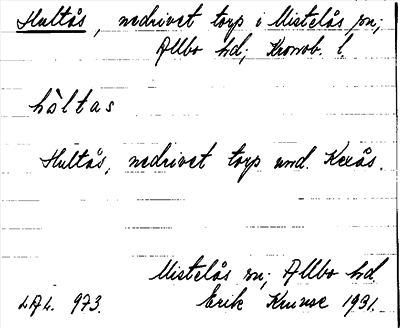 Hultås, nedrivet torp i Mistelås sn;
Allbo hd; Kronob. l.
hòltas
Hultås, nedrivet torp und. Kexås.
Mistelås sn; Allbo hd
LAL. 973. Erik Kruuse 1931.